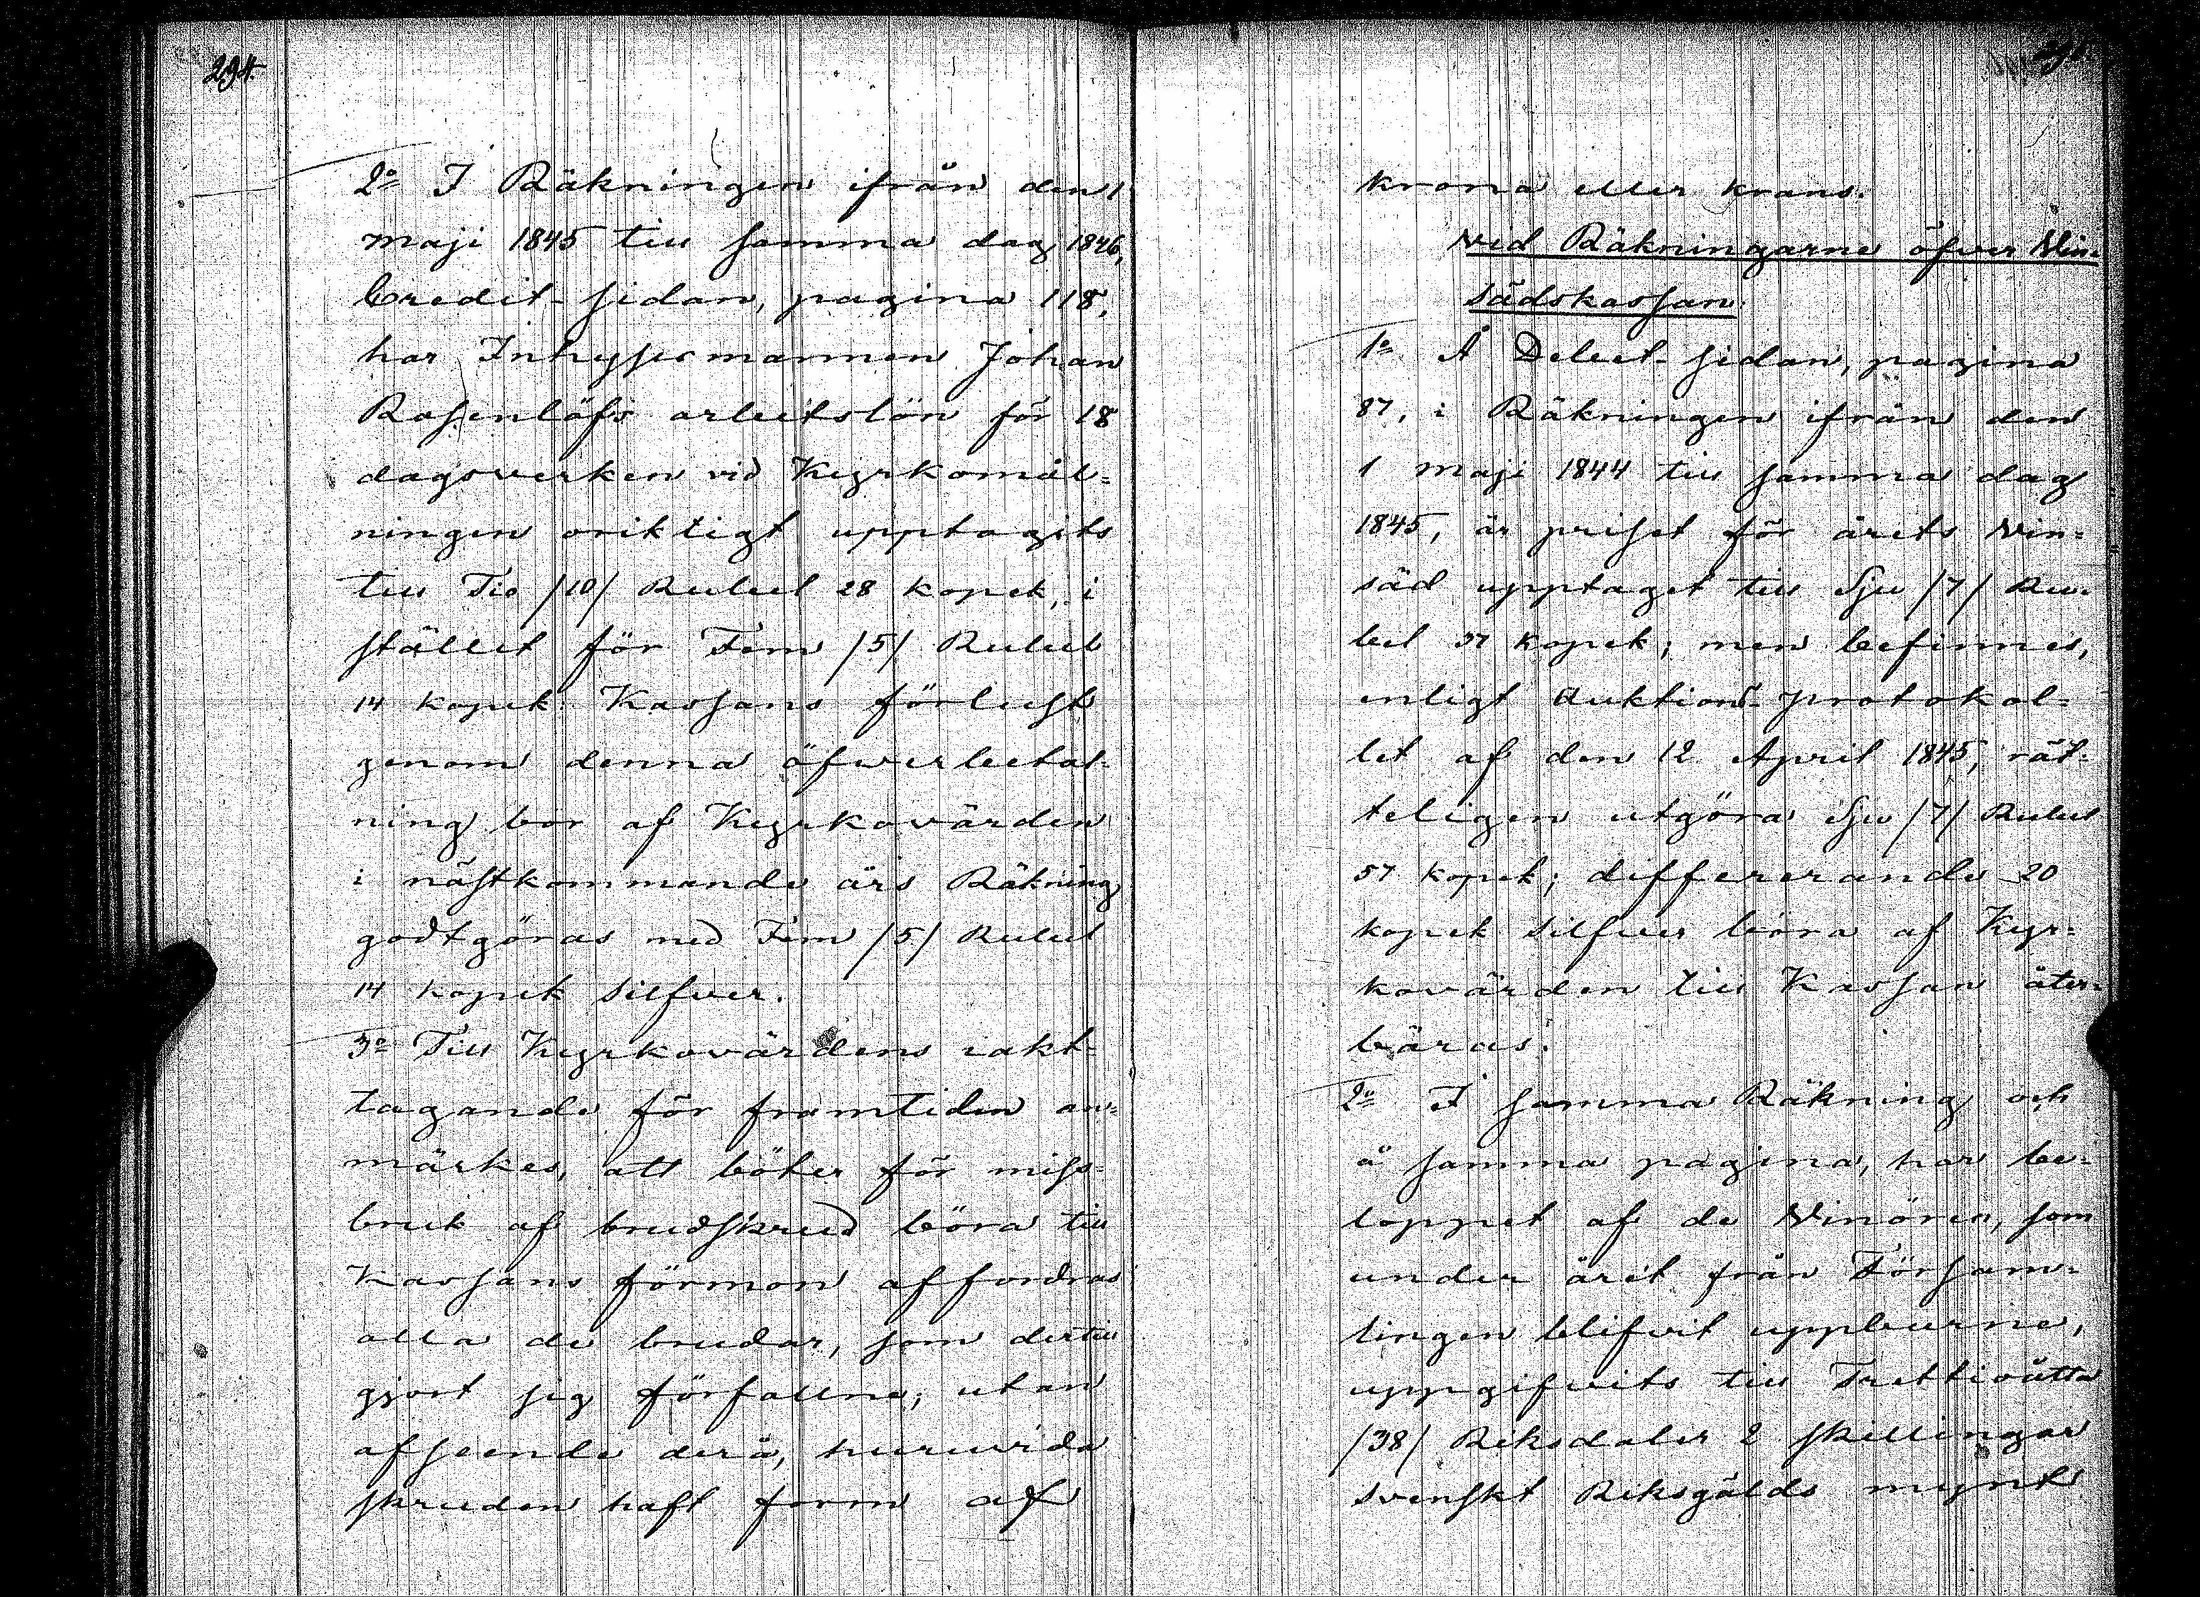 294.
2o I Räkningen ifrån den 1
maji 1845 till samma dag 1846,
Credit-sidan, pagina 118,
har Inhysesmannen Johan
Rosenlöfs arbetslön för 18
dagsverken vid Kyrkomål=
ningen oriktigt upptagits
till Tio /10/ Rubel 28 kopek, i
stället för Fem /5/ Rubel
14 kopek. Kassans förlust
genom denna öfverbetal=
ning bör af Kyrkovärden
i nästkommande års Räkning
godtgöras med Fem /5/ Rubel
14 kopek silfver.
3o Till Kyrkovärdens iakt=
tagande för framtiden an=
märkes, att böter för miss=
bruk af brudskrud böra till
Kassans förmon affordras
alla de brudar, som dertill
gjort sig förfallne; utan
afseende derå, huruvida
skruden haft form af
krona eller krans.
Vid Räkningarne öfver Vin=
sädskassan.
1o Å Debet-sidan, pagina
87, i Räkningen ifrån den
1 maji 1844 till samma dag
1845, är priset för årets Vin=
säd upptaget till Sju /7/ Ru=
bel 37 kopek; men befinnes,
enligt Auktions-protokol=
let af den 12 April 1845, rät=
teligen utgöra Sju /7/ Rubel
57 kopek; differerande 20
kopek silfver böra af Kyr=
kovärden till Kassan åter=
bäras.
2o I samma Räkning och
å samma pagina, har be=
loppet af de Vinören, som
under året från Försam=
lingen blifvit uppburne,
uppgifvits till Trettioåtta
/38/ Riksdaler 2 skillingar
svenskt Riksgälds mynt